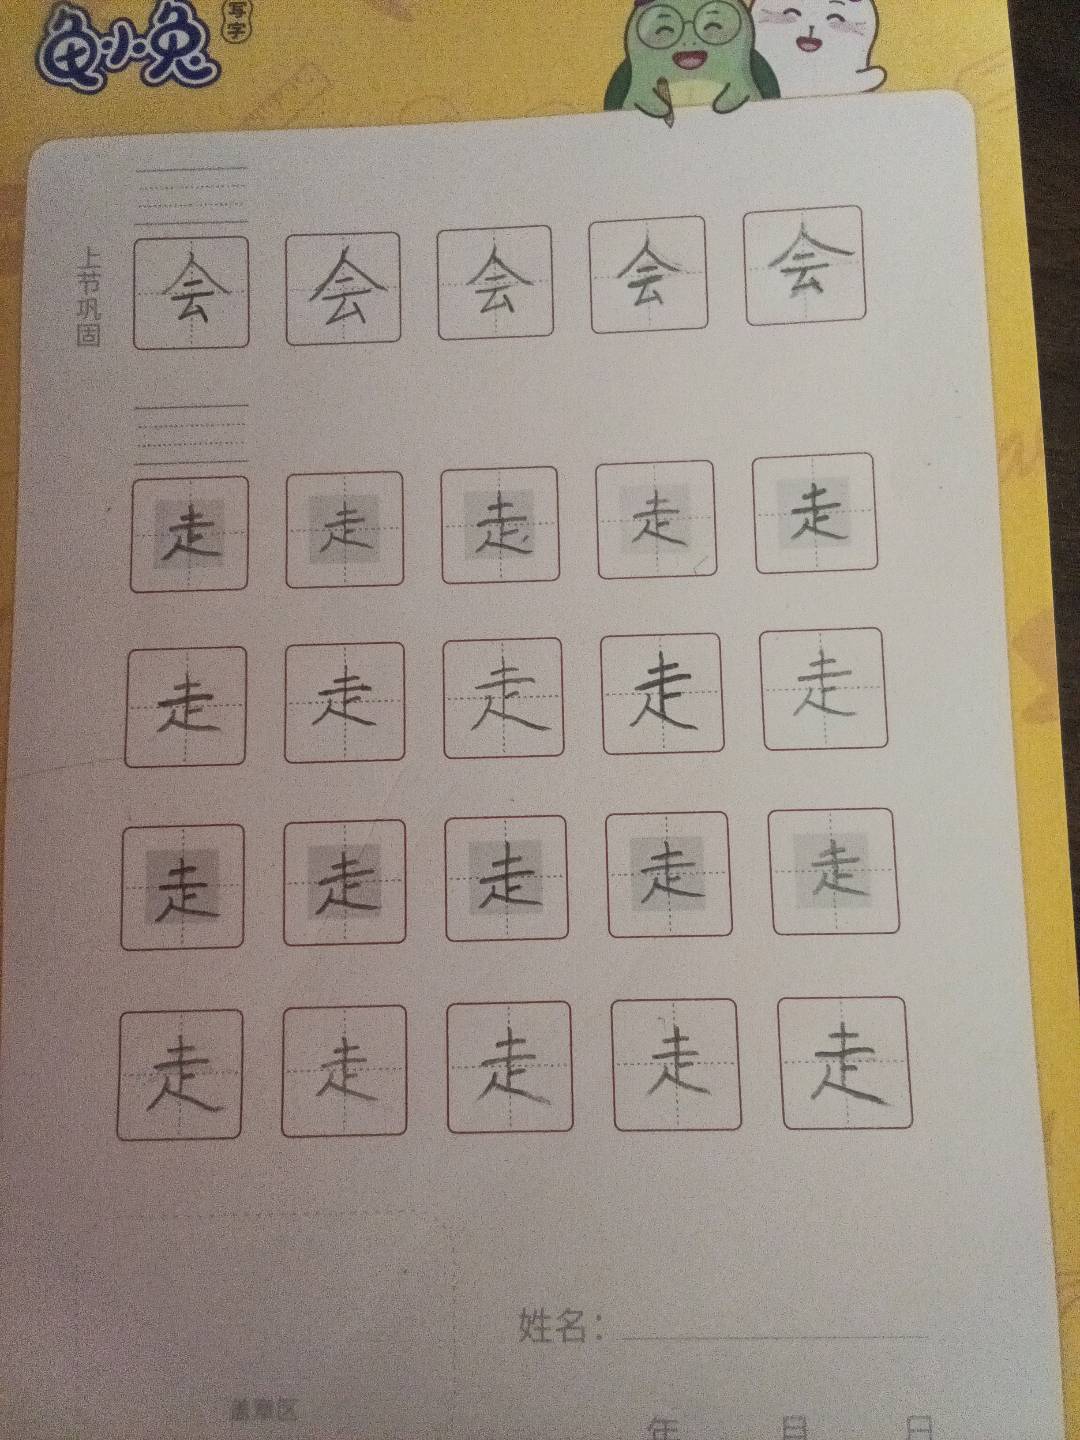 龟小兔
写字
上节巩固
会 会 会 会 会
走 走 走 走 走
走 走 走 走 走
走 走 走 走 走
走 走 走 走 走
姓名：
盖章区
年 月 日